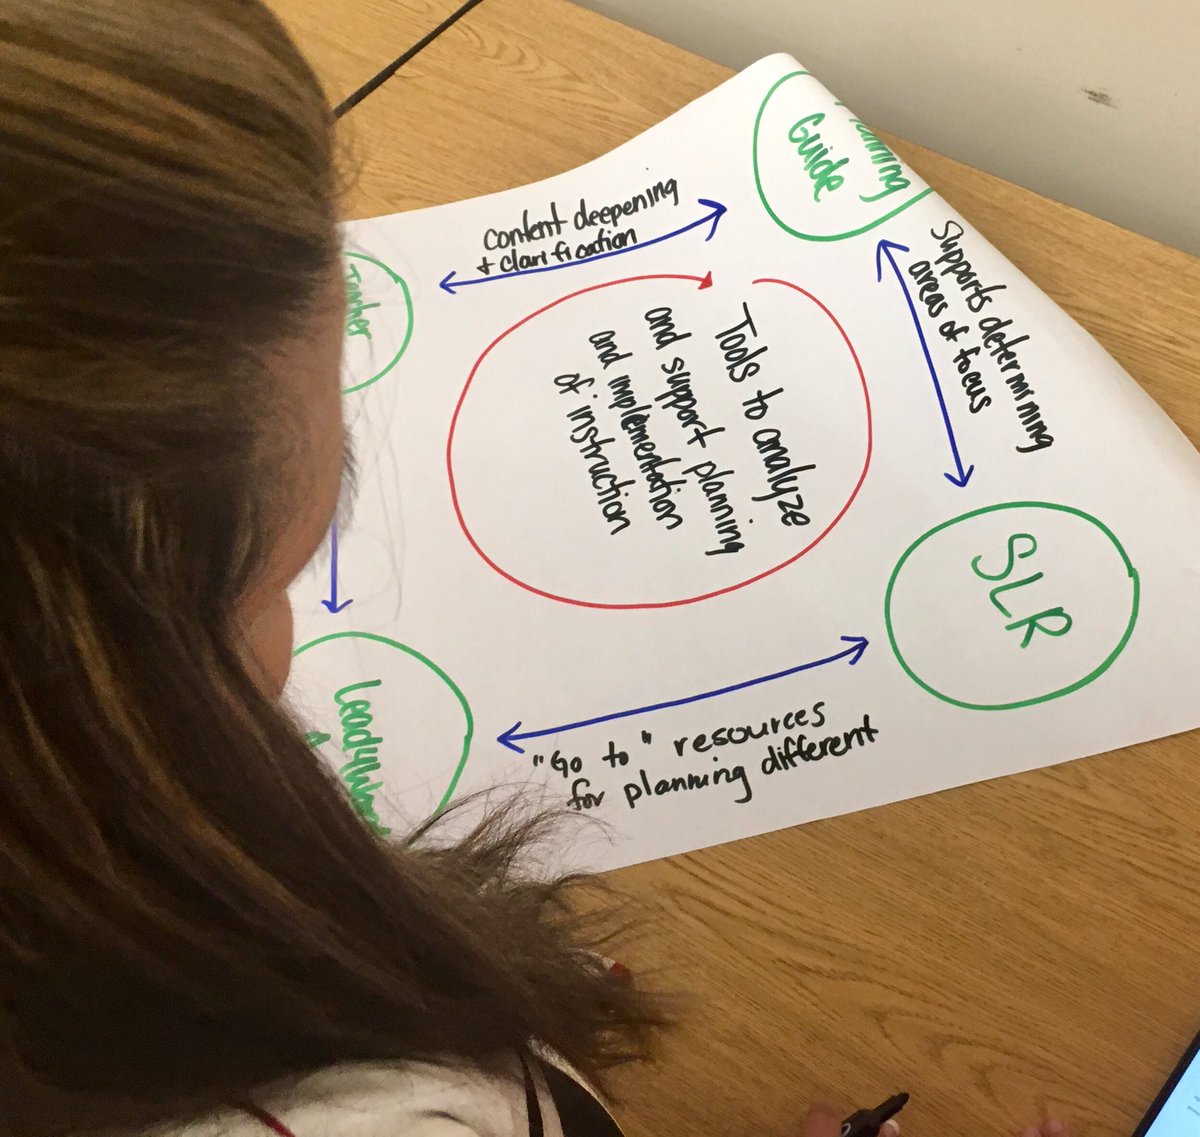 Planning
Guide
content deepening
+ clarification
Teacher
Supports determining
areas of focus
Tools to analyze
and support planning
and implementation
of instruction
SLR
"Go to" resources
for planning different